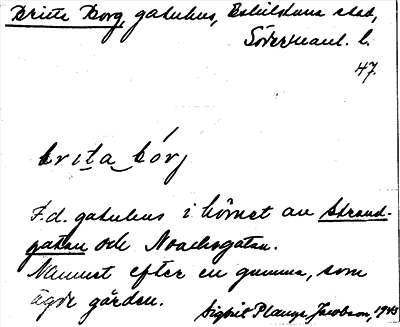 Brita Borg, gatuhus, Eskilstuna stad,
Södermanl. l.
47.
brita bórj
F.d. gatuhus i hörnet av Strand-
gatan och Noachsgatan.
Namnet efter en gumma, som
ägde gården.
Sigrit Jacobson, 1935